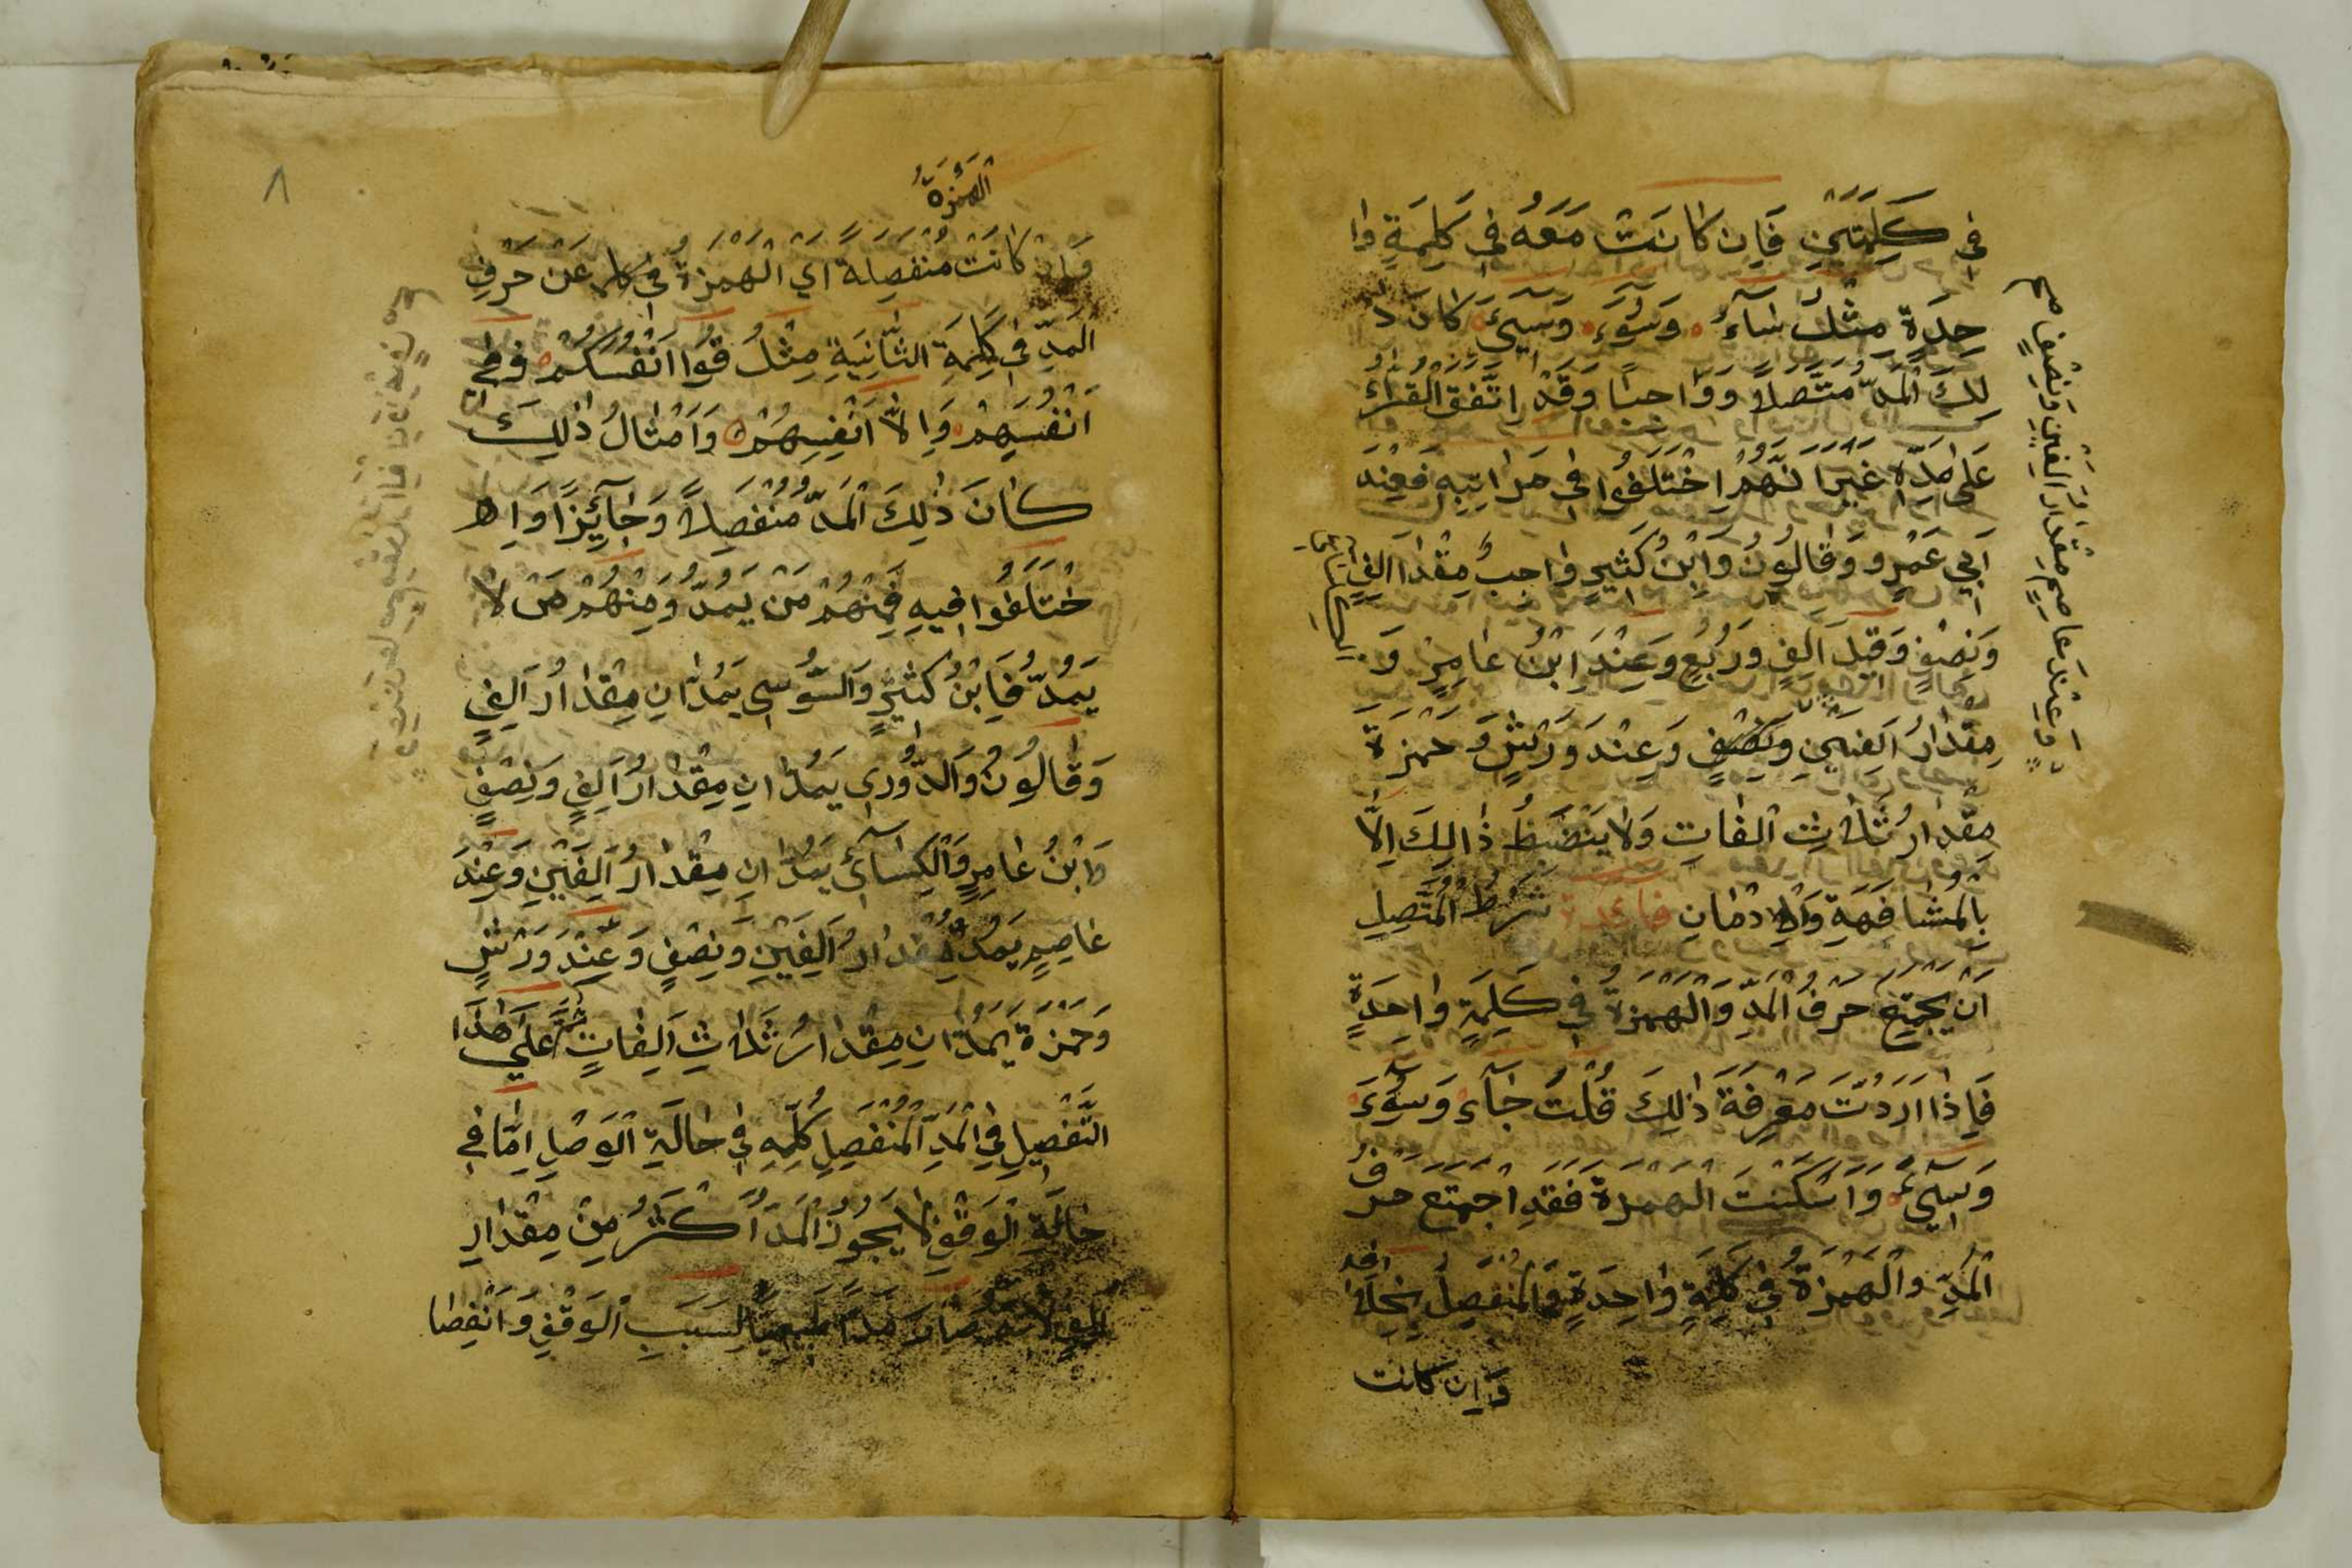 في كَلِمَتَيْنِ فَاِن كَانَتْ مَعَهُ فِي كَلِمَةٍ وا
حِدَةٍ مِثْلُ شَآءَ وَسُوٓءَ وَسِيٓءَ كَانَ ذٰ
لِكَ الْمَدُّ مُتَّصِلاً وَوَاجِبًا وَقَدْ اِتَّفَقَ الْقُرَّاءُ
عَلٰى مَدِّهِ غَيْرَ اَنَّهُمْ اِخْتَلَفُوا فِي مَرَاتِبِهِ فَعِنْدَ
اَبِي عَمْرٍو وَقَالُونَ وَابْنُ كَثِيرٍ وَاجِبٌ مِقْدَارُ اَلِفٍ
وَنِصْفٍ وَقِيلَ اَلِفٍ وَرُبُعٍ وَعِنْدَ اِبْنُ عَامِرٍ وَ
مِقْدَارُ اَلِفَيْنِ وَنِصْفٍ وَعِنْدَ وَرْشٍ وَحَمْزَةَ
مِقْدَارُ ثَلٰاثِ اَلِفَاتِ وَلَا يَنْضَبِطُ ذٰالِكَ اِلَّا
بِالْمُشَافَهَةِ وَالْاِدْمَانِ فائدة شَرْطُ الْمُتَّصِلِ
اَنْ يَجْتَمِعَ حَرْفُ الْمَدِّ وَالْهَمْزَةُ فِي كَلِمَةٍ وَاحِدَةٍ
فَاِذَا اَرَدْتَ مَعْرِفَةَ ذٰلِكَ قُلْتَ جَآءَ وَسُوٓءَ
وَسِيٓءَ وَاَسْكَنْتَ الْهَمْزَةَ فَقَدِ اجْتَمَعَ حَرْفُ
الْمَدِّ وَالْهَمْزَةُ فِي كَلِمَةٍ وَاحِدَةٍ وَالْمُنْفَصِلُ بِخِلَافِهِ
وَاِن كانت
وَعِنْدَ عَاصِمٍ مِقْدَارُ اَلِفَيْنِ وَنِصْفٍ صح
الهَمْزَةُ
وَاِنْ كَانَتْ مُنْفَصِلَةً اَيِ الْهَمْزَةُ فِي كلمة عَنْ حَرْفِ
الْمَدِّ فِي كَلِمَةِ الثَّانِيَةِ مِثْلُ قُوا اَنْفُسَكُمْ وَفِي
اَنْفُسِهِمْ وَاِلَّا اَنْفُسَهُمْ وَاَمْثَالُ ذٰلِكَ
كَانَ ذٰلِكَ الْمَدُّ مُنْفَصِلاً وَجَآئِزًا وَا
خْتَلَفُوا فِيهِ فَمِنْهُمْ مَنْ يَمُدُّ وَمِنْهُمْ مَنْ لَا
يَمُدُّ فَابْنُ كَثِيرٍ وَالسُّوسِي يَمُدَّانِ مِقْدَارُ اَلِفٍ
وَقَالُونُ وَالدُّورِي يَمُدَّانِ مِقْدَارُ اَلِفٍ وَنِصْفٍ
وَابْنُ عَامِرٍ وَالْكِسَآئِي يَمُدَّانِ مِقْدَارُ اَلِفَيْنِ وَعِنْدَ
عَاصِمٍ يَمُدُّ مِقْدَارُ اَلِفَيْنِ وَنِصْفٍ وَعِنْدَ وَرْشٍ
وَحَمْزَةَ يَمُدَّانِ مِقْدَارُ ثَلٰاثِ اَلِفَاتٍ ثُمَّ عَلٰى هٰذَا
التَّفْصِيلِ فِي الْمَدِّ الْمُنْفَصِلِ كُلِّهِ فِي حَالَةِ الْوَصْلِ اَمَّا فِي
حَالَةِ الْوَقْفِ لَا يَجُوزُ الْمَدُّ اَكْثَرُ مِنْ مِقْدَارِ
اَلِفٍ لِاَنَّهُ صَارَ مَدًّا طَبِيعِيًّا لِسَبَبِ الْوَقْفِ وَانْفِصَا